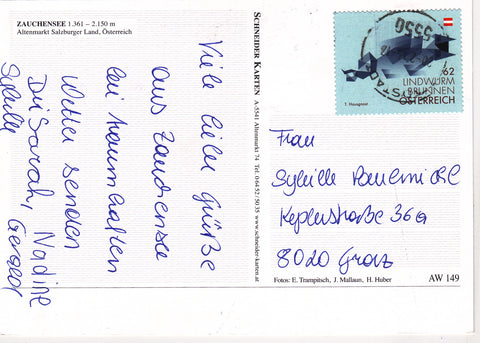 ZAUCHENSEE 1.361 – 2.150 m
Altenmarkt Salzburger Land, Österreich
Viele liebe Grüße
aus Zauchensee
bei traumhaften
Wetter senden
Dir Sarah, Nadine
Sybille Gerald
SCHNEIDER KARTEN A-5541 Altenmarkt 74 Tel. 0 64 52/50 35 www.schneider-karten.at
5550
62
LINDWURM
BRUNNEN
ÖSTERREICH
T. Hausgenst
Frau
Sybille
Keplerstraße 36a
8020 Graz
Fotos: E. Trampitsch, J. Mallaun, H. Huber
AW 149